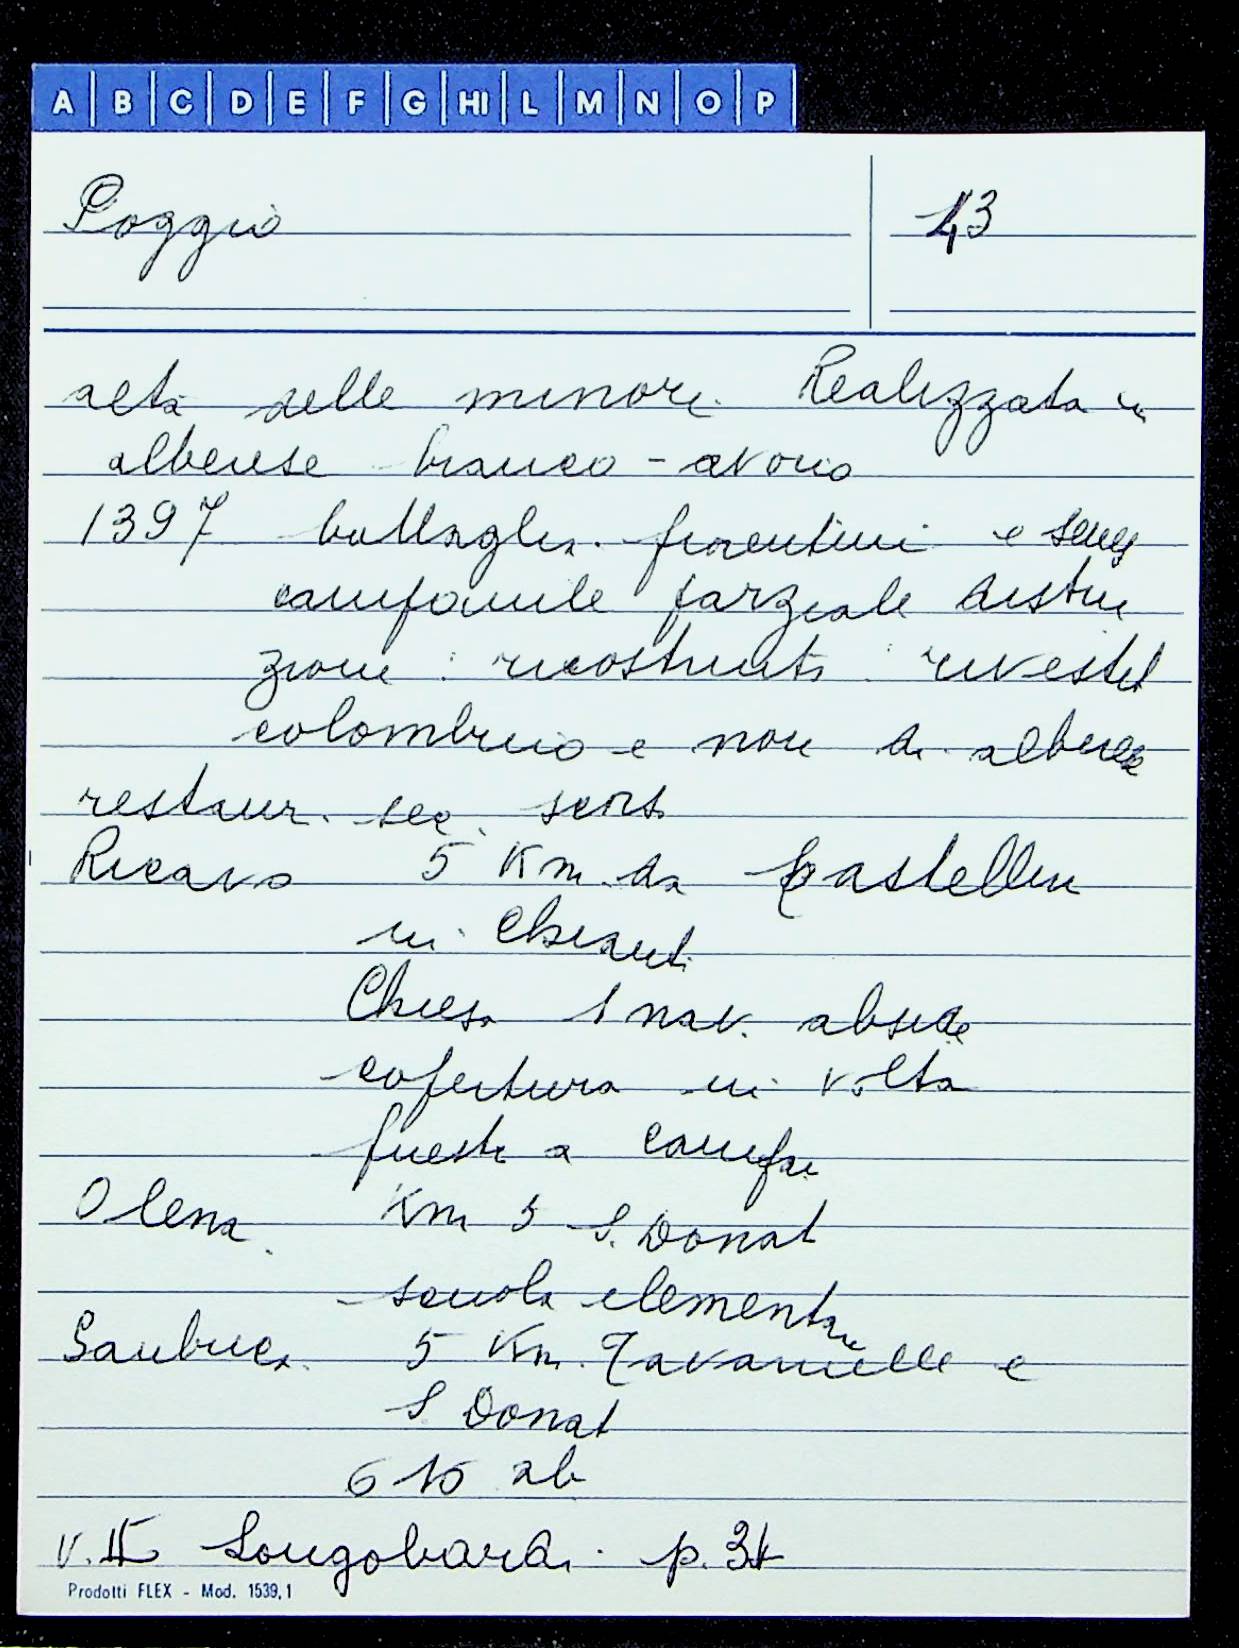 A B C D E F G HI L M N O P
Poggio 43
alta delle minori. Realizzata in
alberese bianco-avorio
1397 battaglia. fiorentini e senes
campanile parziale distru
zione : ricostruito : rivestit
colombino e non di alberese
restaur. sec. scors
Ricavo 5 Km. da Castellin
in Chianti
Chiesa 1 nav. abside
copertura in volta
a
Olena. Km 5 S. Donat
scuola elementare
5 Km. Tavarnelle e
S Donat
610 ab
v. II Longobardi. p.
Prodotti FLEX - Mod. 1539,1